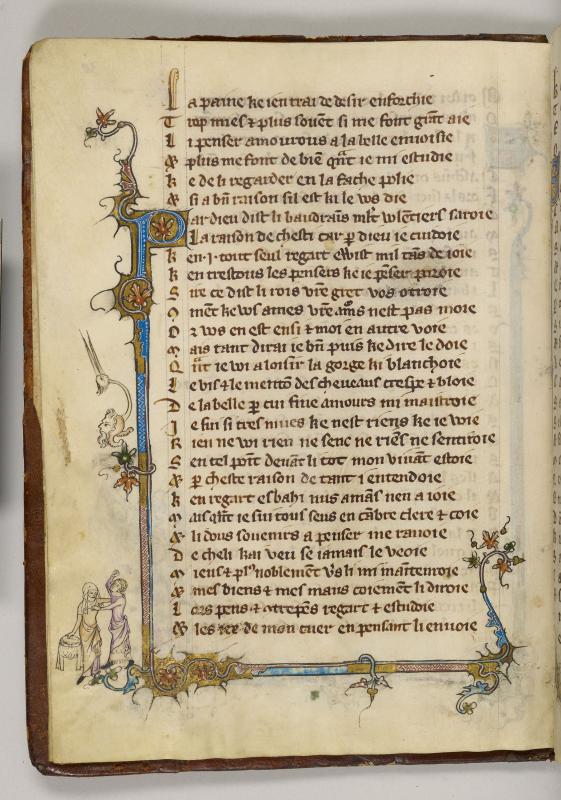 La paine ke ien trai de desir enforchie
Trop mies & plus souēt si me font giūt aie
Li penser amourous a la belle enuoisie
& plus me font de biē qn̄t ie mi estudie
ke de li regarder en la fache polie
& si a bn̄ raison sil est ki le ws die
Par dieu dist li baudrains
La raison de chesti car p̄ dieu ie cuidoie
ken .i. tout seul regart ewist mil tās de ioie
ken trestous les pensers ke ie pēser poroie
Sire ce dist li rois vr̄e gret vos otroie
9mēt ke ws ames vr̄e am̄s nest pas moie
Or ws en est ensi & moi en autre voie
mais tant dirai ie bn̄ puis ke dire le doie
Qn̄t ie wi a loisir la gorge ki blanchoie
Le vis & le mentō des cheueaus crespe & bloie
De la belle p̄ cui fine amours mi maistroie
Ie fui si tres mues ke nest riens ke ie wie
Rien ne wi rien ne senc ne riēs ne sentiroie
En tel poīt deuāt li tot mon viuāt estoie
& p̄ cheste raison de tant i entendoie
ken regart esbahi nus amās nen a ioie
mais qn̄t ie sui tous seus en cābre clere & coie
& li dous souenirs a penser me rauoie
De cheli kai veu se iamais le veoie
mieus & pl⁹ noblement v̄s li mi maintenroie
& mes biens & mes maus coiement li diroie
Lors pens & atrepēs regart & estudie
& les iex de mon cuer en pensant li enuoie